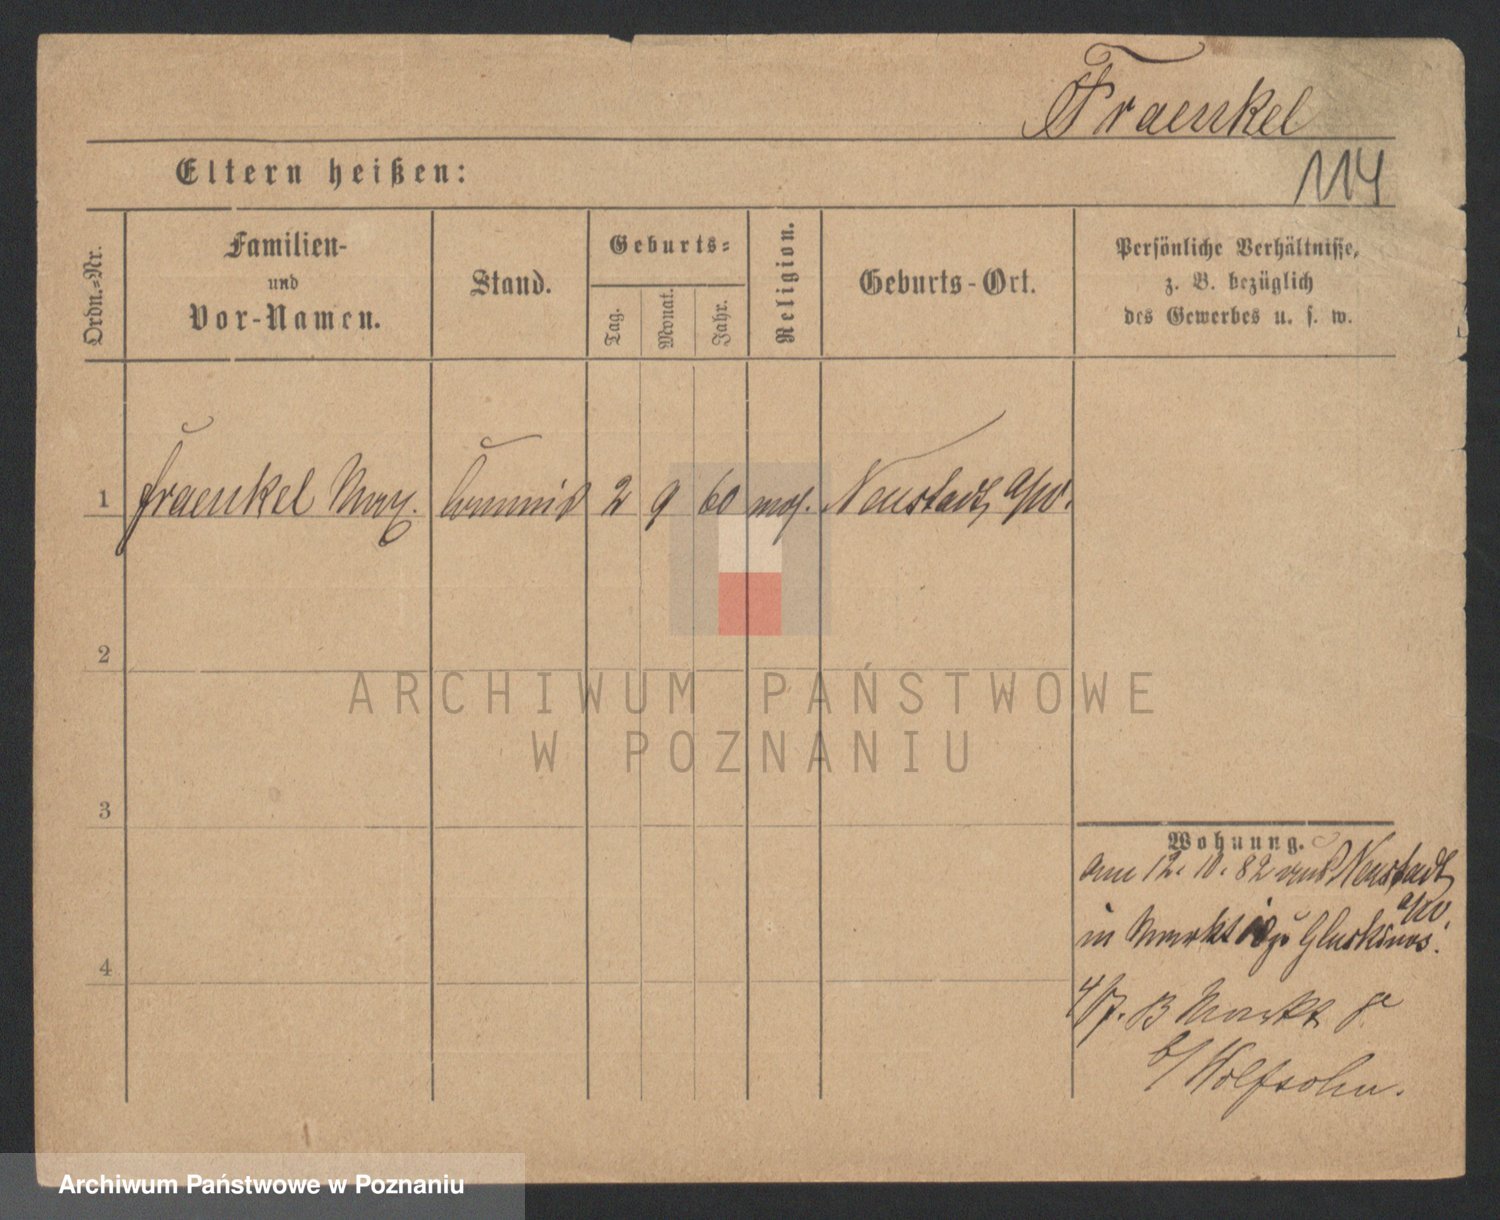 Fraenkel
Eltern heißen:
114
Ordn.-Nr.
Familien-
und
Vor-Namen.
Stand.
Geburts-
Tag.
Monat.
Jahr.
Religion.
Geburts-Ort.
Persönliche Verhältnisse,
z. B. bezüglich
des Gewerbes u. s. w.
1 Fraenkel Max. Commis 2 9 60 mos. Neustadt a/W.
2
3
4
Wohnung.
am 12. 10. 82 aus Neustadt
a/W.
in Markt
Markt 8a
b/ Wolfsohn.
ARCHIWUM PAŃSTWOWE
W POZNANIU
Archiwum Państwowe w Poznaniu